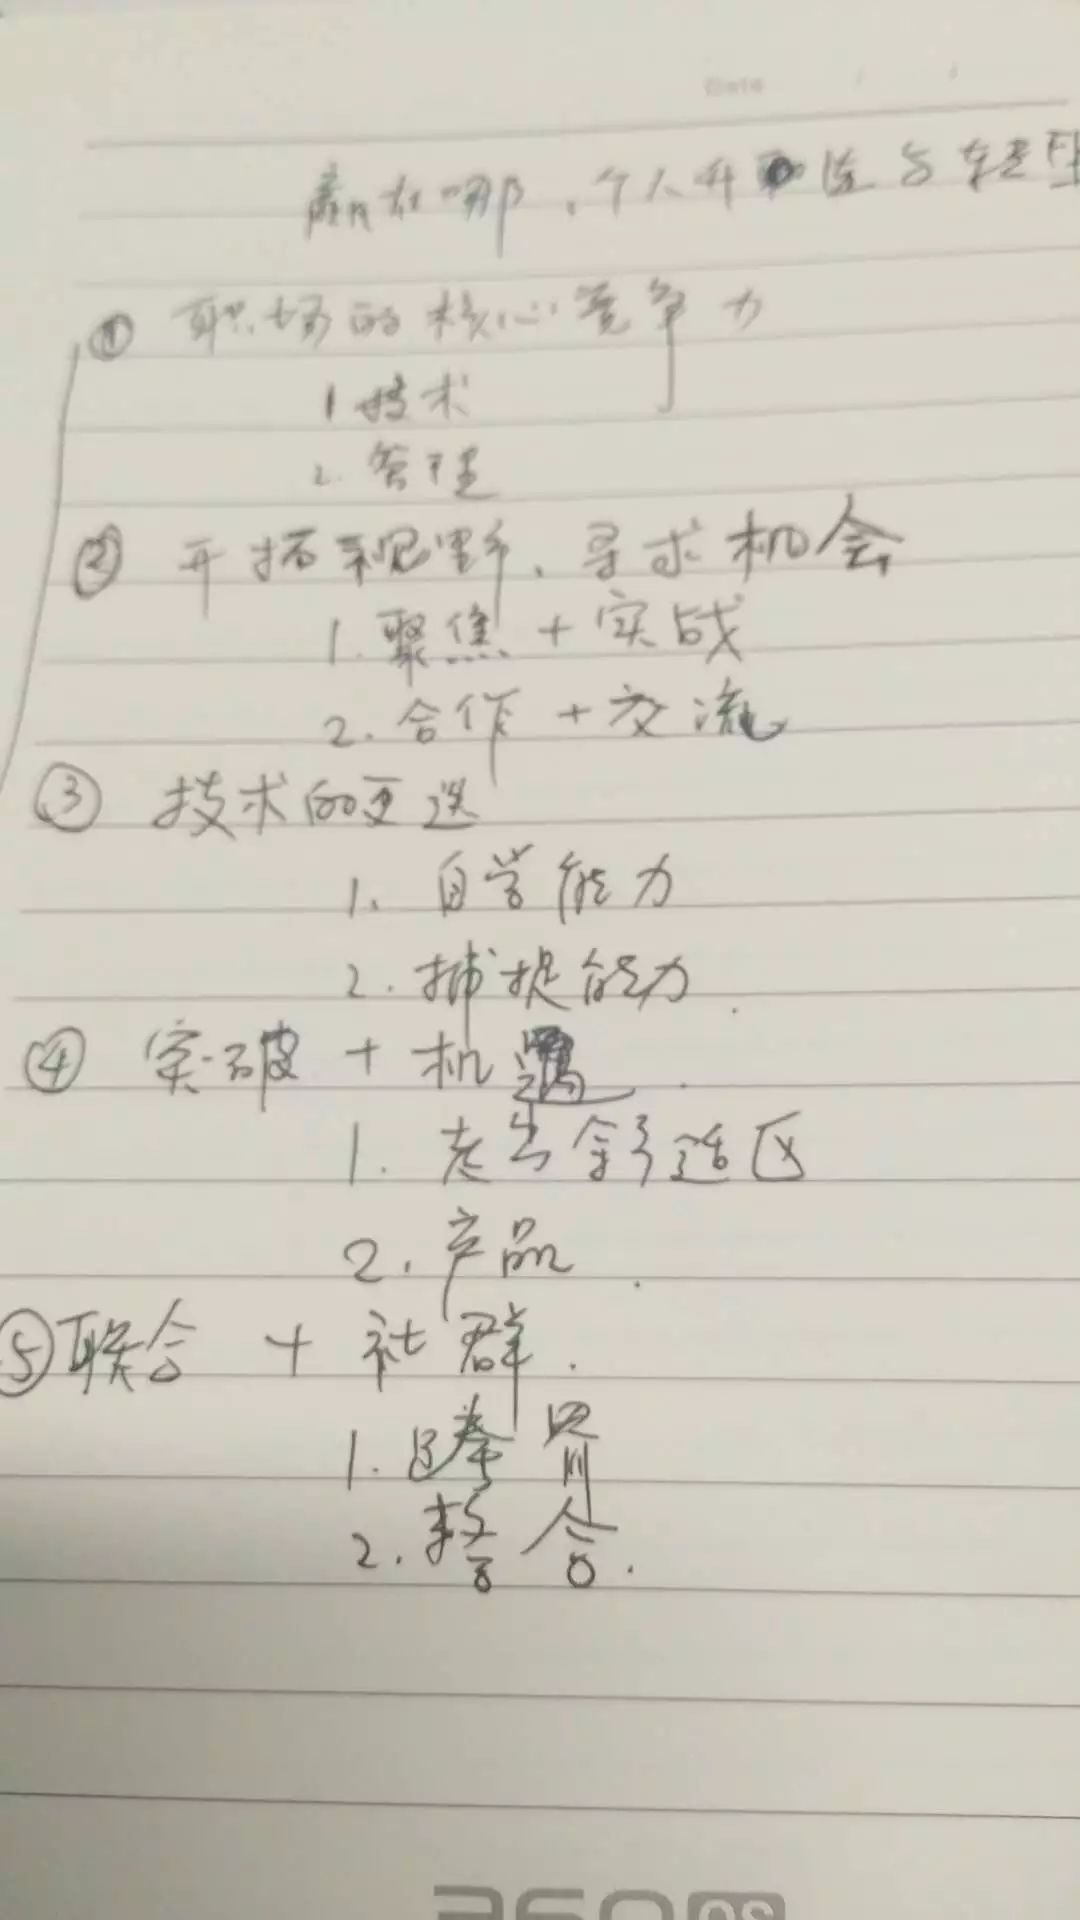 Date
赢在哪、个人升与转型
① 职场的核心竞争力
1 技术
2. 管理
② 开拓视野、寻求机会
1. 聚焦 + 实战
2. 合作 + 交流
③ 技术的更迭
1. 自学能力
2. 捕捉能力.
④ 突破 + 机遇.
1. 走出舒适区
2. 产品.
⑤ 联合 + 社群.
1.
2. 整合.
360 OS